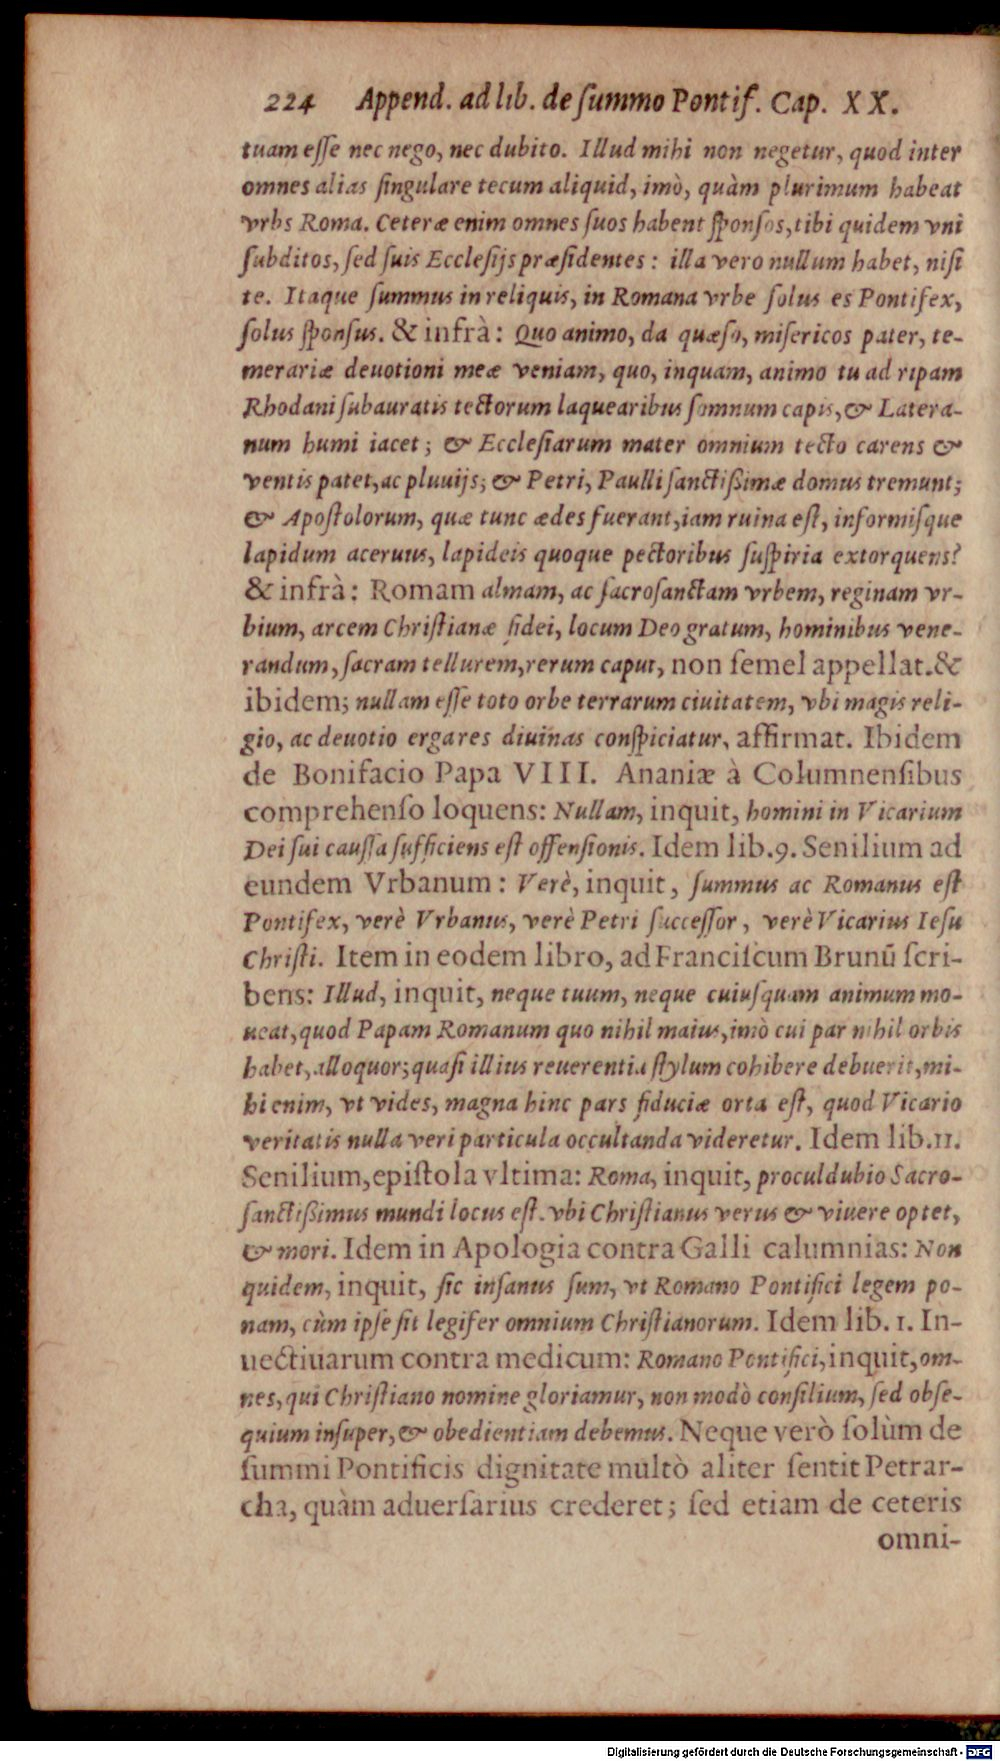 224 Append. ad lib. de ſummo Pontif. Cap. XX.
tuam eſſe nec nego, nec dubito. Illud mihi non negetur, quod inter
omnes alias ſingulare tecum aliquid, imò, quàm plurimum habeat
vrbs Roma. Ceteræ enim omnes ſuos habent ſponſos, tibi quidem vni
ſubditos, ſed ſuis Eccleſijs præſidentes: illa vero nullum habet, niſi
te. Itaque ſummus in reliquis, in Romana vrbe ſolus es Pontifex,
ſolus ſponſus. & infrà: Quo animo, da quæſo, miſericos pater, te-
merariæ deuotioni meæ veniam, quo, inquam, animo tu ad ripam
Rhodani ſubauratis tectorum laquearibus ſomnum capis, & Latera-
num humi iacet; & Eccleſiarum mater omnium tecto carens &
ventis patet, ac pluuijs; & Petri, Paulli ſanctißimæ domus tremunt;
& Apoſtolorum, quæ tunc ædes fuerant, iam ruina eſt, informiſque
lapidum aceruus, lapideis quoque pectoribus ſuſpiria extorquens?
& infrà: Romam almam, ac ſacroſanctam vrbem, reginam vr-
bium, arcem Chriſtianæ fidei, locum Deo gratum, hominibus vene-
randum, ſacram tellurem, rerum caput, non ſemel appellat. &
ibidem; nullam eſſe toto orbe terrarum ciuitatem, vbi magis reli-
gio, ac deuotio erga res diuinas conſpiciatur, affirmat. Ibidem
de Bonifacio Papa VIII. Ananiæ à Columnenſibus
comprehenſo loquens: Nullam, inquit, homini in Vicarium
Dei ſui cauſſa ſufficiens eſt offenſionis. Idem lib. 9. Senilium ad
eundem Vrbanum: Verè, inquit, ſummus ac Romanus eſt
Pontifex, verè Vrbanus, verè Petri ſucceſſor, verè Vicarius Ieſu
Chriſti. Item in eodem libro, ad Franciſcum Brunũ ſcri-
bens: Illud, inquit, neque tuum, neque cuiuſquam animum mo-
ueat, quod Papam Romanum quo nihil maius, imò cui par nihil orbis
habet, alloquor; quaſi illius reuerentia ſtylum cohibere debuerit, mi-
hi enim, vt vides, magna hinc pars fiduciæ orta eſt, quod Vicario
veritatis nulla veri particula occultanda videretur. Idem lib. 11.
Senilium, epiſtola vltima: Roma, inquit, proculdubio Sacro-
ſanctißimus mundi locus eſt. vbi Chriſtianus verus & viuere optet,
& mori. Idem in Apologia contra Galli calumnias: Non
quidem, inquit, ſic inſanus ſum, vt Romano Pontifici legem po-
nam, cùm ipſe ſit legifer omnium Chriſtianorum. Idem lib. 1. In-
uectiuarum contra medicum: Romano Pontifici, inquit, om-
nes, qui Chriſtiano nomine gloriamur, non modò conſilium, ſed obſe-
quium inſuper, & obedientiam debemus. Neque verò ſolùm de
ſummi Pontificis dignitate multò aliter ſentit Petrar-
cha, quàm aduerſarius crederet; ſed etiam de ceteris
omni-
Digitalisierung gefördert durch die Deutsche Forschungsgemeinschaft - DFG